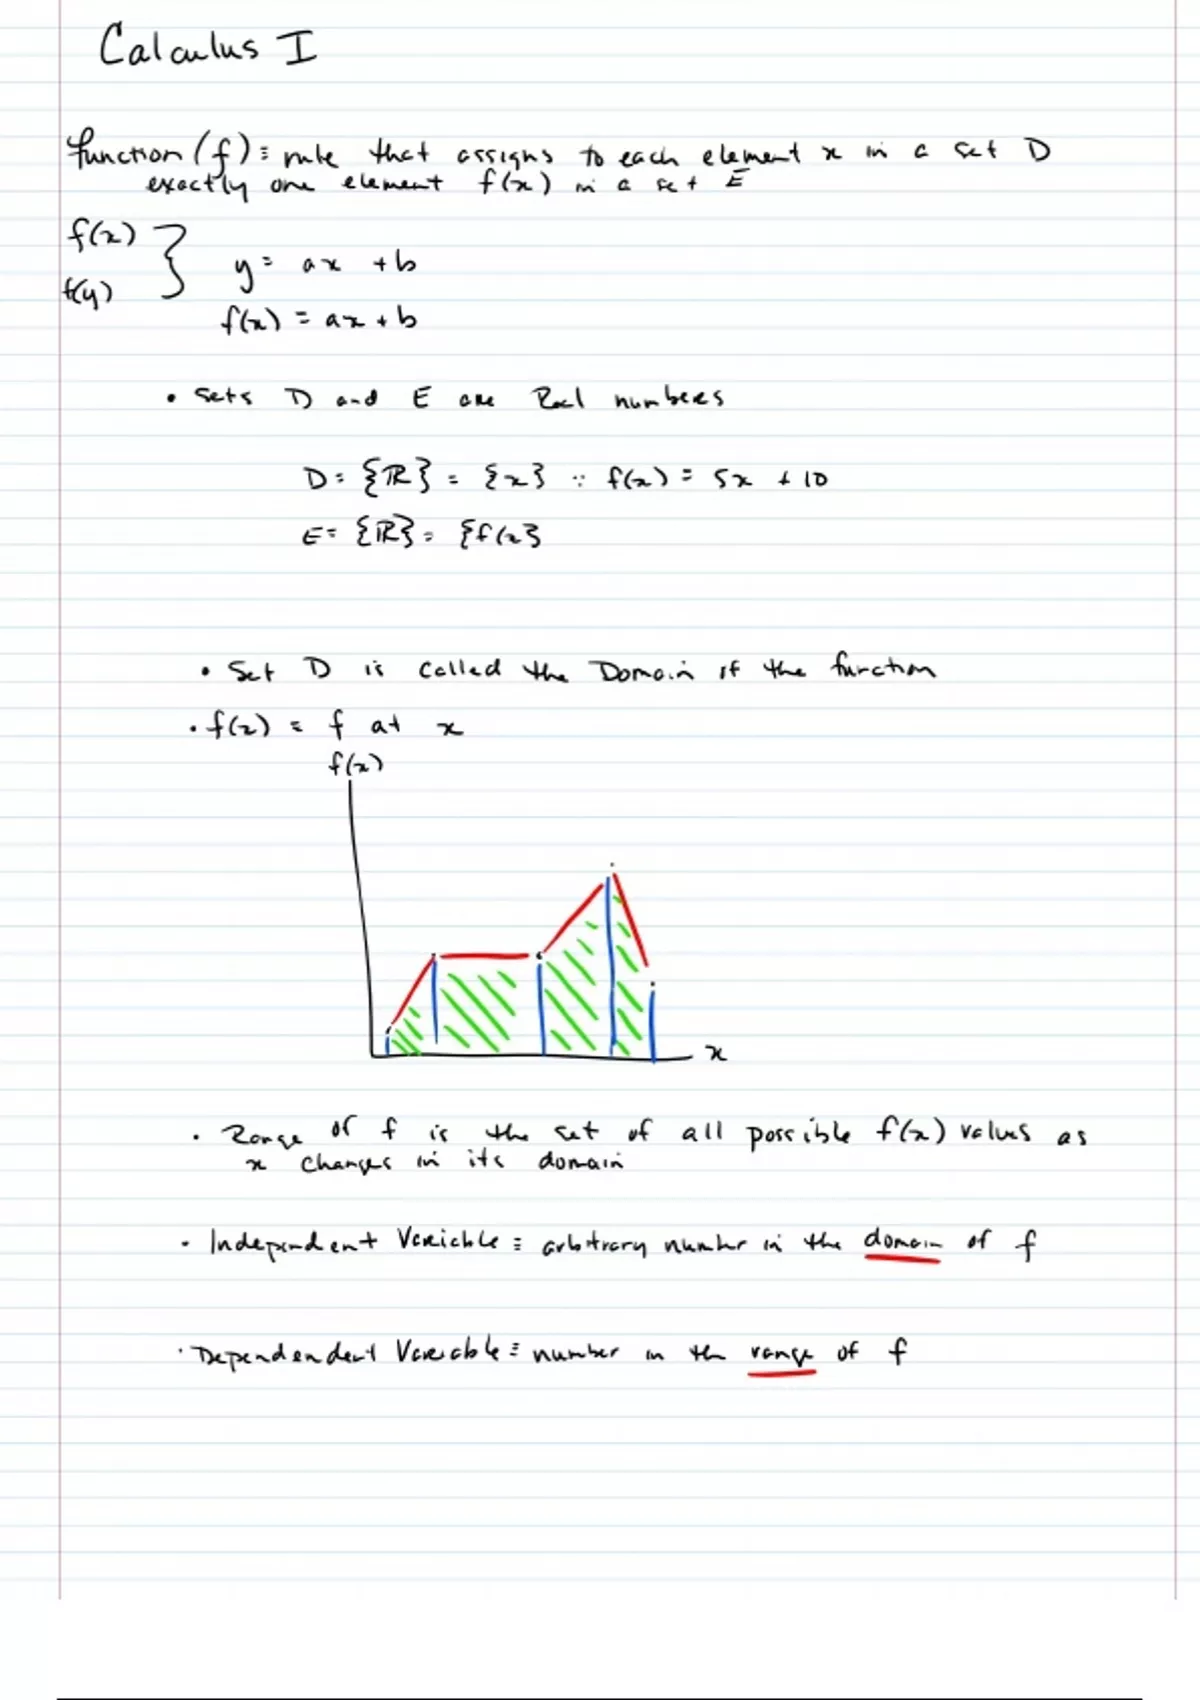 Calculus I
function (f) ≡ rule that assigns to each element x in a set D
exactly one element f(x) in a set E
f(x)
f(y)
} y = ax + b
f(x) = ax + b
• Sets D and E are Real numbers
D = {ℝ} = {x} ∵ f(x) = 5x + 10
E = {ℝ} = {f(x}
• Set D is called the Domain of the function
• f(x) = f at x
f(x)
x
• Range of f is the set of all possible f(x) values as
x changes in its domain
• Independent Variable ≡ arbitrary number in the domain of f
• Dependendent Variable ≡ number in the range of f